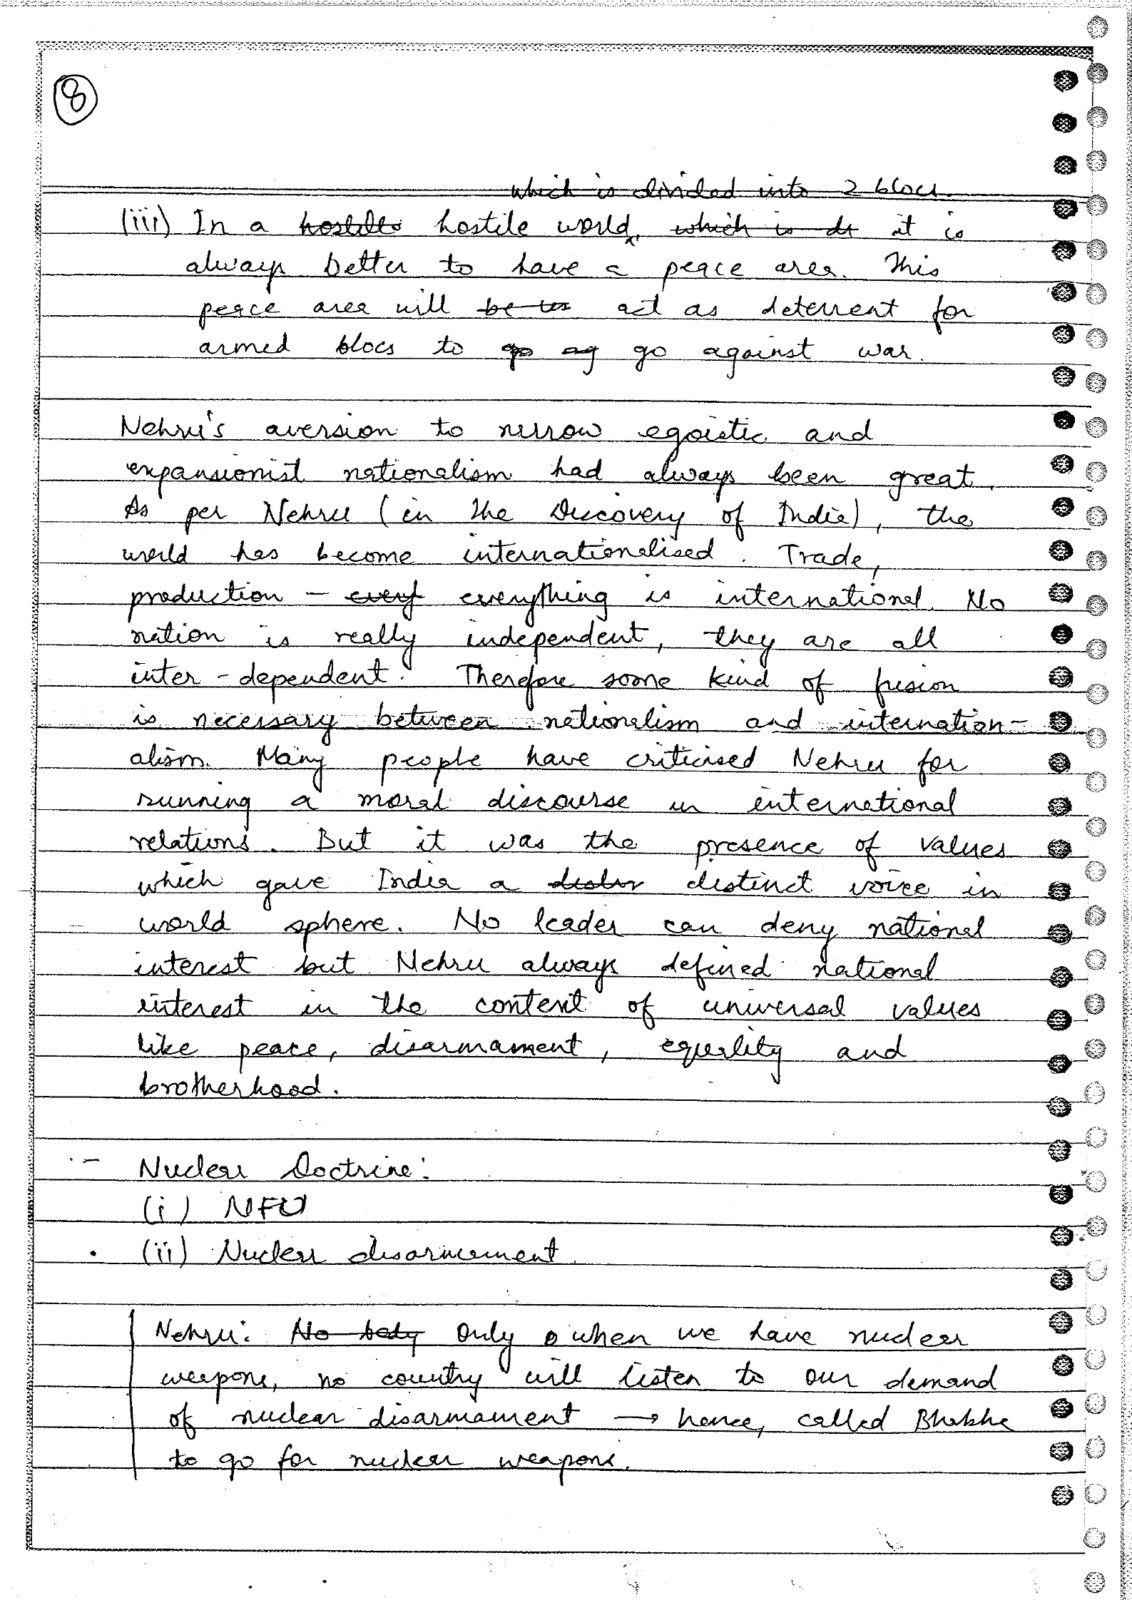 8
which is divided into 2 blocs.
(iii) In a hostile hostile world, which is it is
always better to have a peace area. This
peace area will be act as deterrent for
armed blocs to go go against war.
Nehru's aversion to nurrow egoistic and
expansionist nationalism had always been great.
As per Nehru (in the Discovery of India), the
world has become internationalised. Trade,
production - every everything is international. No
nation is really independent, they are all
inter-dependent. Therefore some kind of fusion
is necessary between nationalism and internation-
alism. Many people have criticised Nehru for
running a moral discourse in international
relations. But it was the presence of values
which gave India a distinct voice in
world sphere. No leader can deny national
interest but Nehru always defined national
interest in the content of universal values
like peace, disarmament, equality and
brotherhood.
- Nuclear Doctrine:
(i) NFU
(ii) Nuclear disarmement
Nehru: No body Only when we have nuclear
weapons, no country will listen to our demand
of nuclear disarmament → hence, called Bhabha
to go for nuclear weapons.